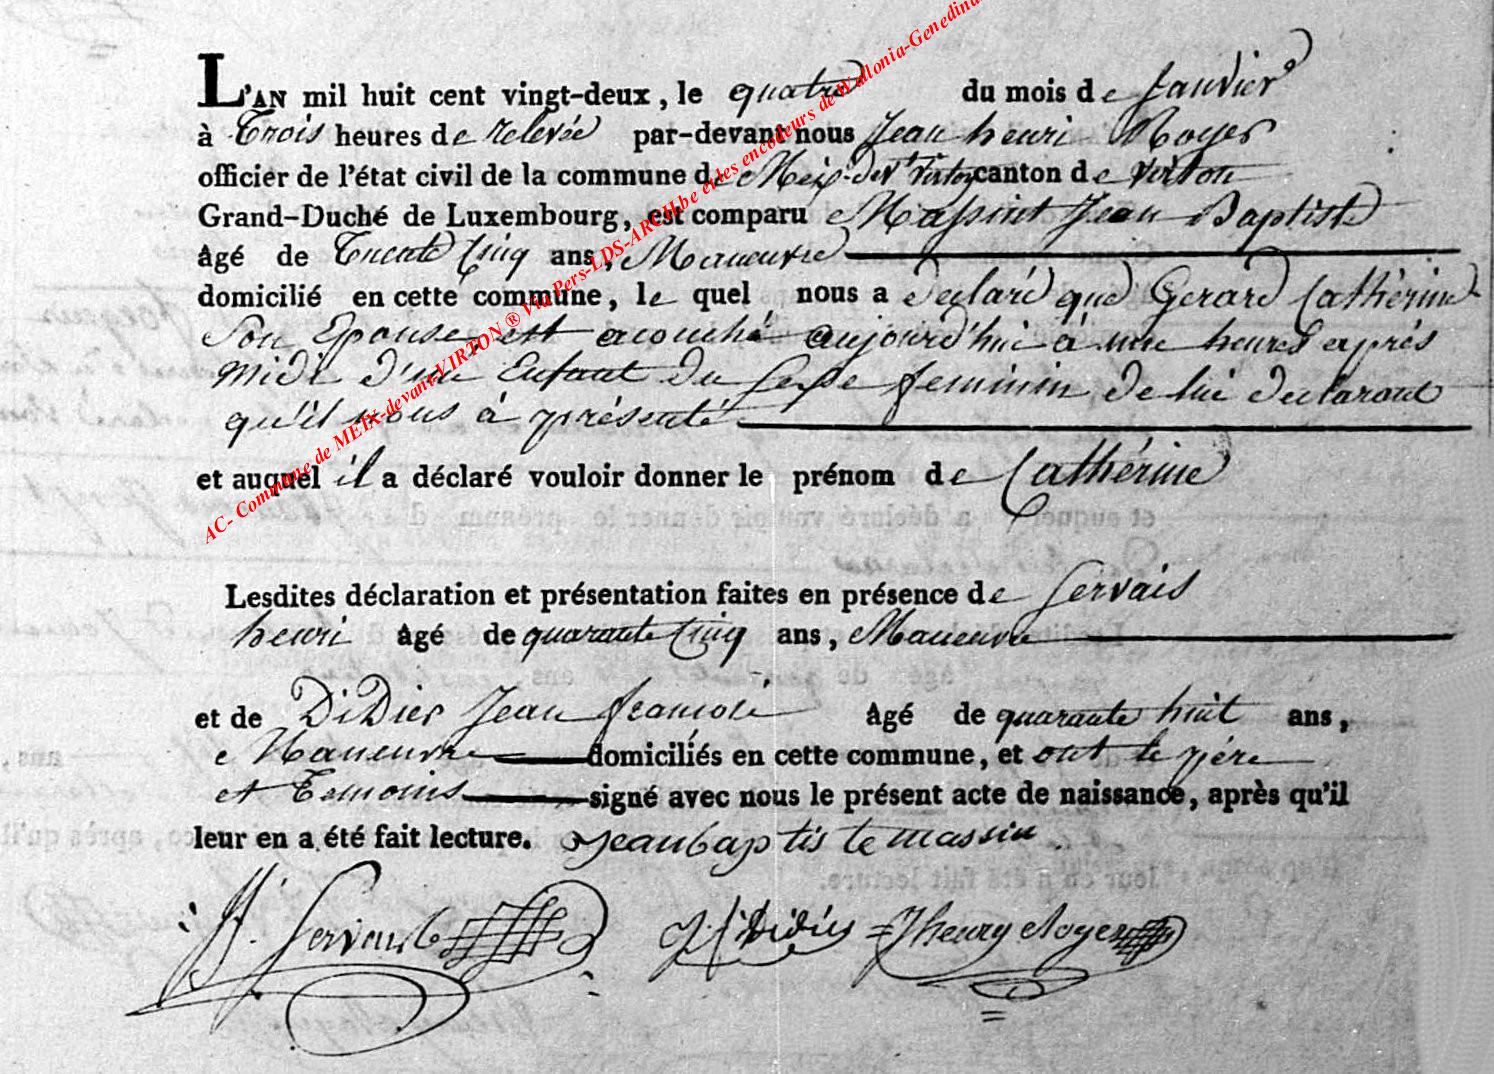 L'AN mil huit cent vingt-deux, le quatre du mois de Janvier
à Trois heures de relevée par-devant nous Jean henri Noyer
officier de l'état civil de la commune de Meix-devt Virton canton de Virton
Grand-Duché de Luxembourg, est comparu Massint Jean Baptiste
âgé de Trente Cinq ans, Maneuvre
domicilié en cette commune, le quel nous a declaré que Gerard Cathérine
Son Epouse, est acouché aujourd'hui à une heures après
midi d'un Enfant du Sexe feminin de lui declarant
qu'il nous à présenté
et auquel il a déclaré vouloir donner le prénom de Cathérine
Lesdites déclaration et présentation faites en présence de Gervais
henri âgé de quarante Cinq ans, Maneuvre
et de Didier Jean francois âgé de quarante huit ans,
Maneuvre domiciliés en cette commune, et ont le père
et Temoins signé avec nous le présent acte de naissance, après qu'il
leur en a été fait lecture. Jean baptis te massin
H. Gervais Didier Jhenry Noyer
AC- Commune de MEIX-devant-VIRTON ® Via Pers-LDS-ARCH.be et les encodeurs de Wallonia-Genedina